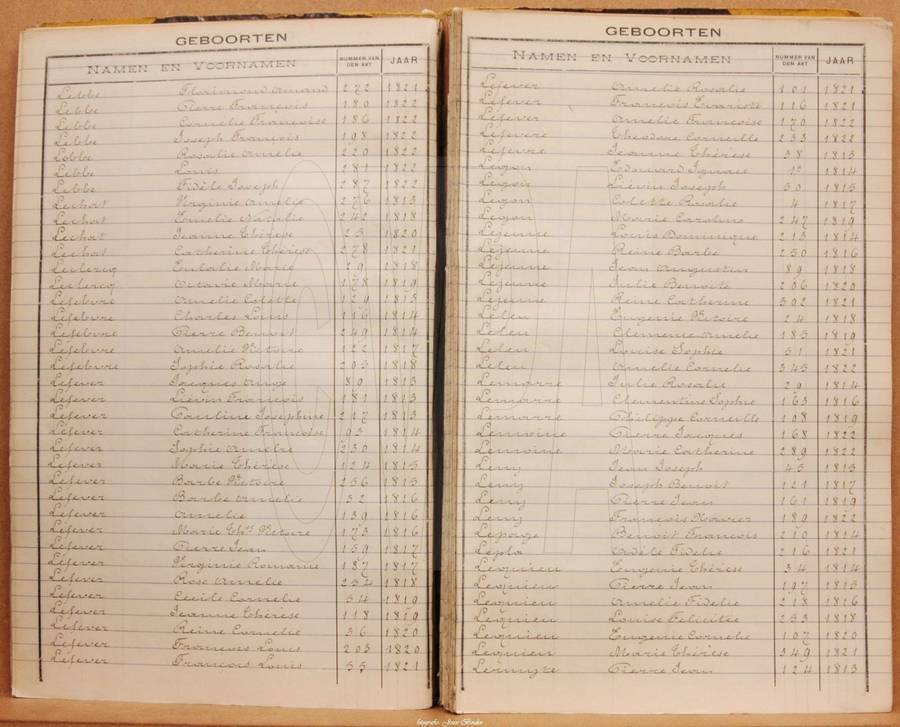 GEBOORTEN
NAMEN EN VOORNAMEN NUMMER VAN DEN AKT JAAR
Libbe Florimond Amand 272 1821
Libbe Pierre François 180 1822
Libbe Cornélie Françoise 186 1122
Libbe Joseph François 198 1822
Libbe Rosalie Amelie 220 1822
Libbe Louis 281 1822
Libbe Fidèle Joseph 287 1822
Lechat Virginie Amelie 276 1813
Lechat Emelie Natalie 242 1818
Lechat Jeanne Thérèse 25 1820
Lechat Catherine Thérèse 278 1821
Leclercq Eulalie Marie 29 1818
Leclercq Octavie Marie 178 1819
Lefebvre Amelie Colette 129 1813
Lefebvre Charles Louis 116 1814
Lefebvre Pierre Benoit 249 1814
Lefebvre Amelie Victoire 122 1817
Lefebvre Sophie Rosalie 203 1818
Lefever Jacques 89 1813
Lefever Liévin François 181 1813
Lefever Pauline Josephine 217 1813
Lefever Catherine Françoise 93 1814
Lefever Sophie Amelie 230 1814
Lefever Marie Thérèse 124 1815
Lefever Barbe Victoire 256 1815
Lefever Barbe Amelie 32 1816
Lefever Amelie 139 1816
Lefever Marie Ths Victoire 173 1816
Lefever Pierre Jean 159 1817
Lefever Virginie Romaine 187 1817
Lefever Rose Amelie 254 1818
Lefever Cecile Cornelie 54 1819
Lefever Jeanne Thérèse 118 1819
Lefever Reine Cornelie 36 1820
Lefever François Louis 203 1820
Lefever François Louis 55 1821
GEBOORTEN
NAMEN EN VOORNAMEN NUMMER VAN DEN AKT JAAR
Lefever Amelie Rosalie 101 1821
Lefever François Evariste 116 1821
Lefever Amelie Françoise 170 1822
Lefevere Theodore Corneille 233 1822
Lefevre Jeanne Thérèse 38 1813
Legon Edouard Ignace 1814
Legon Lievin Joseph 30 1815
Legon Colette Rosalie 4 1817
Legon Marie Caroline 247 1819
Lejeune Louis Dominique 213 1814
Lejeune Reine Barbe 250 1816
Lejeune Jean Augustin 89 1818
Lejeune Julie Benoite 206 1820
Lejeune Reine Catherine 302 1821
Leleu Eugenie Victoire 24 1818
Leleu Clemence Amelie 183 1819
Leleu Louise Sophie 31 1821
Leleu Amelie Cornelie 343 1822
Lemarre Julie Rosalie 29 1814
Lemarre Clementine Sophie 163 1816
Lemarre Philippe Corneille 108 1819
Lemoine Pierre Jacques 168 1822
Lemoine Marie Catherine 289 1822
Leny Jean Joseph 45 1815
Leny Joseph Benoit 121 1817
Leny Pierre Jean 161 1819
Leny François Xavier 189 1822
Lepouge Benoit François 210 1814
Lepla Adèle Fidelie 216 1821
Lequien Eugenie Thérèse 34 1814
Lequien Pierre Jean 197 1815
Lequien Amelie Fidelie 218 1816
Lequien Louise Felicitée 253 1818
Lequien Eugenie Cornelie 107 1820
Lequien Marie Thérèse 349 1821
Lermyte Pierre Jean 124 1813